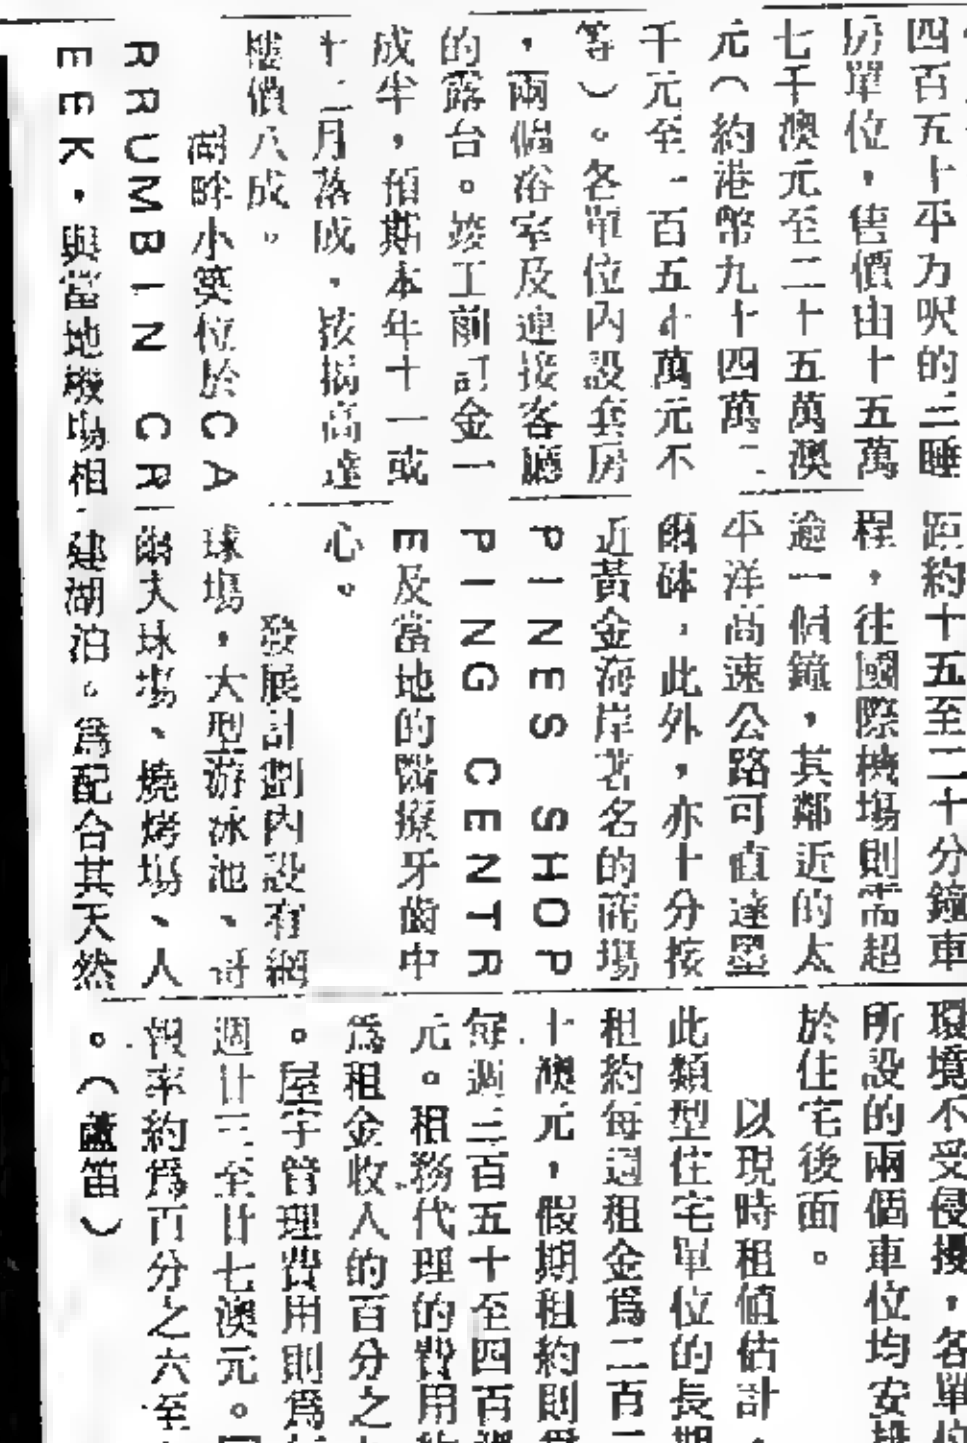 四百五十平方呎的三睡
房單位，售價由十五萬
七千澳元至二十五萬澳
元（約港幣九十四萬二
千元至一百五十萬元不
等）。各單位內設套房
，兩個浴室及連接客廳
的露台。竣工前訂金一
成半，預期本年十一或
十二月落成，按揭高達
樓價八成。
湖畔小築位於CA
RRUMBIN CR
EEK，與當地機場相
距約十五至二十分鐘車
程，往國際機場則需超
逾一個鐘，其鄰近的太
平洋高速公路可直達墨
爾砵，此外，亦十分接
近黃金海岸著名的商場
PINES SHOP
PING CENTR
E及當地的醫療牙齒中
心。
發展計劃內設有網
球場，大型游泳池、哥
爾夫球場、燒烤場、人
建湖泊。為配合其天然
環境不受侵擾，各單位
所設的兩個車位均安
於住宅後面。
以現時租値估計，
此類型住宅單位的長期
租約每週租金為二百二
十澳元，假期租約則為
每週三百五十至四百澳
元。租務代理的費用約
為租金收入的百分之
。屋宇管理費用則為
週廿三至廿七澳元。
報率約為百分之六至
。（蘆笛）